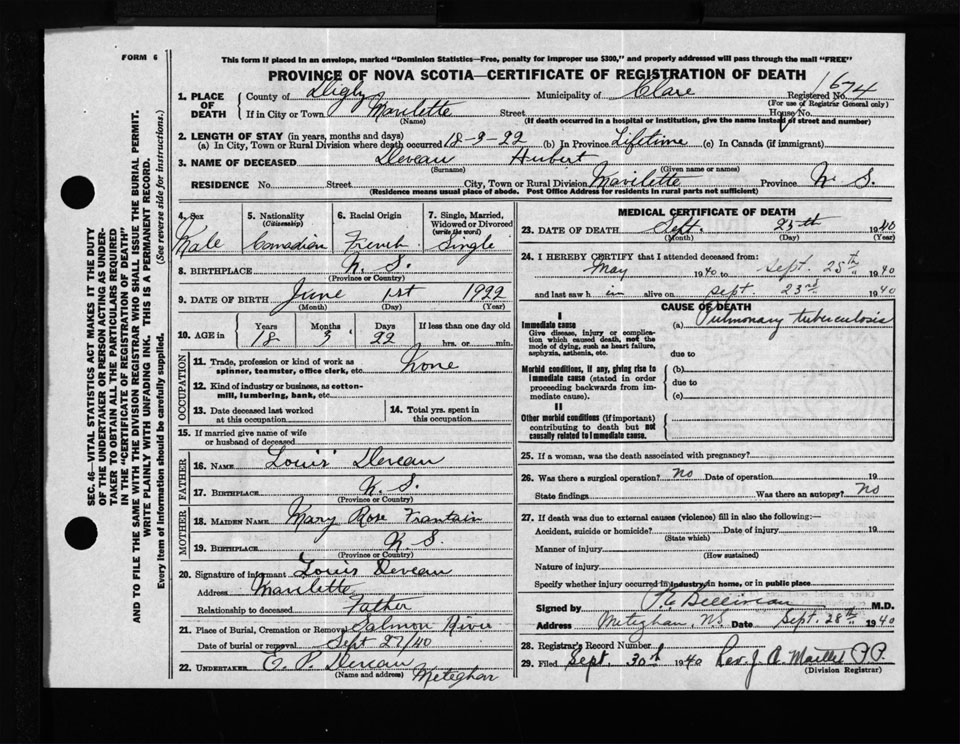 FORM 6
This form if placed in an envelope, marked "Dominion Statistics—Free, penalty for improper use $300," and properly addressed will pass through the mail "FREE"
PROVINCE OF NOVA SCOTIA—CERTIFICATE OF REGISTRATION OF DEATH
1. PLACE OF DEATH County of Digby Municipality of Clare Registered No. 1674
(For use of Registrar General only)
If in City or Town Mavilette Street House No.
(Name) (If death occurred in a hospital or institution, give the name instead of street and number)
2. LENGTH OF STAY (in years, months and days)
(a) In City, Town or Rural Division where death occurred 18-3-22 (b) In Province Lifetime (c) In Canada (if immigrant)
3. NAME OF DECEASED Deveau Hubert
(Surname) (Given name or names)
RESIDENCE No. Street City, Town or Rural Division Mavilette Province N. S.
(Residence means usual place of abode. Post Office Address for residents in rural parts not sufficient)
SEC. 46—VITAL STATISTICS ACT MAKES IT THE DUTY
OF THE UNDERTAKER OR PERSON ACTING AS UNDER-
TAKER TO OBTAIN ALL THE PARTICULARS REQUIRED
IN THE "CERTIFICATE OF REGISTRATION OF DEATH"
AND TO FILE THE SAME WITH THE DIVISION REGISTRAR WHO SHALL ISSUE THE BURIAL PERMIT.
WRITE PLAINLY WITH UNFADING INK. THIS IS A PERMANENT RECORD.
Every item of information should be carefully supplied. (See reverse side for instructions.)
4. Sex Male
5. Nationality (Citizenship) Canadian
6. Racial Origin French
7. Single, Married, Widowed or Divorced (write the word) Single
8. BIRTHPLACE N. S.
(Province or Country)
9. DATE OF BIRTH June 1st 1922
(Month) (Day) (Year)
10. AGE in Years 18 Months 3 Days 22 If less than one day old hrs. or min.
OCCUPATION
11. Trade, profession or kind of work as
spinner, teamster, office clerk, etc. None
12. Kind of industry or business, as cotton-
mill, lumbering, bank, etc.
13. Date deceased last worked
at this occupation
14. Total yrs. spent in
this occupation
15. If married give name of wife
or husband of deceased
FATHER
16. NAME Louis Deveau
17. BIRTHPLACE N. S.
(Province or Country)
MOTHER
18. MAIDEN NAME Mary Rose Frantain
19. BIRTHPLACE N. S.
(Province or Country)
20. Signature of informant Louis Deveau
Address Mavilette
Relationship to deceased Father
21. Place of Burial, Cremation or Removal Salmon River
Date of burial or removal Sept 27/40
22. UNDERTAKER E. P. Deveau Meteghan
(Name and address)
MEDICAL CERTIFICATE OF DEATH
23. DATE OF DEATH Sept. 25th 1940
(Month) (Day) (Year)
24. I HEREBY CERTIFY that I attended deceased from:
May 1940 to Sept. 25th 1940
and last saw him alive on Sept. 23rd 1940
CAUSE OF DEATH
I
Immediate cause (a) Pulmonary tuberculosis
Give disease, injury or complica-
tion which caused death, not the
mode of dying, such as heart failure,
asphyxia, asthenia, etc.
due to
Morbid conditions, if any, giving rise to
immediate cause (stated in order
proceeding backwards from im-
mediate cause).
(b)
due to
(c)
II
Other morbid conditions (if important)
contributing to death but not
causally related to immediate cause.
25. If a woman, was the death associated with pregnancy?
26. Was there a surgical operation? No Date of operation 19
State findings Was there an autopsy? No
27. If death was due to external causes (violence) fill in also the following:—
Accident, suicide or homicide? Date of injury 19
(State which)
Manner of injury
(How sustained)
Nature of injury
Specify whether injury occurred in industry, in home, or in public place
Signed by M.D.
Address Meteghan, N.S. Date Sept. 28th 1940
28. Registrar's Record Number
29. Filed Sept. 30th 1940 Rev. J. A. Maillet P.P.
(Division Registrar)